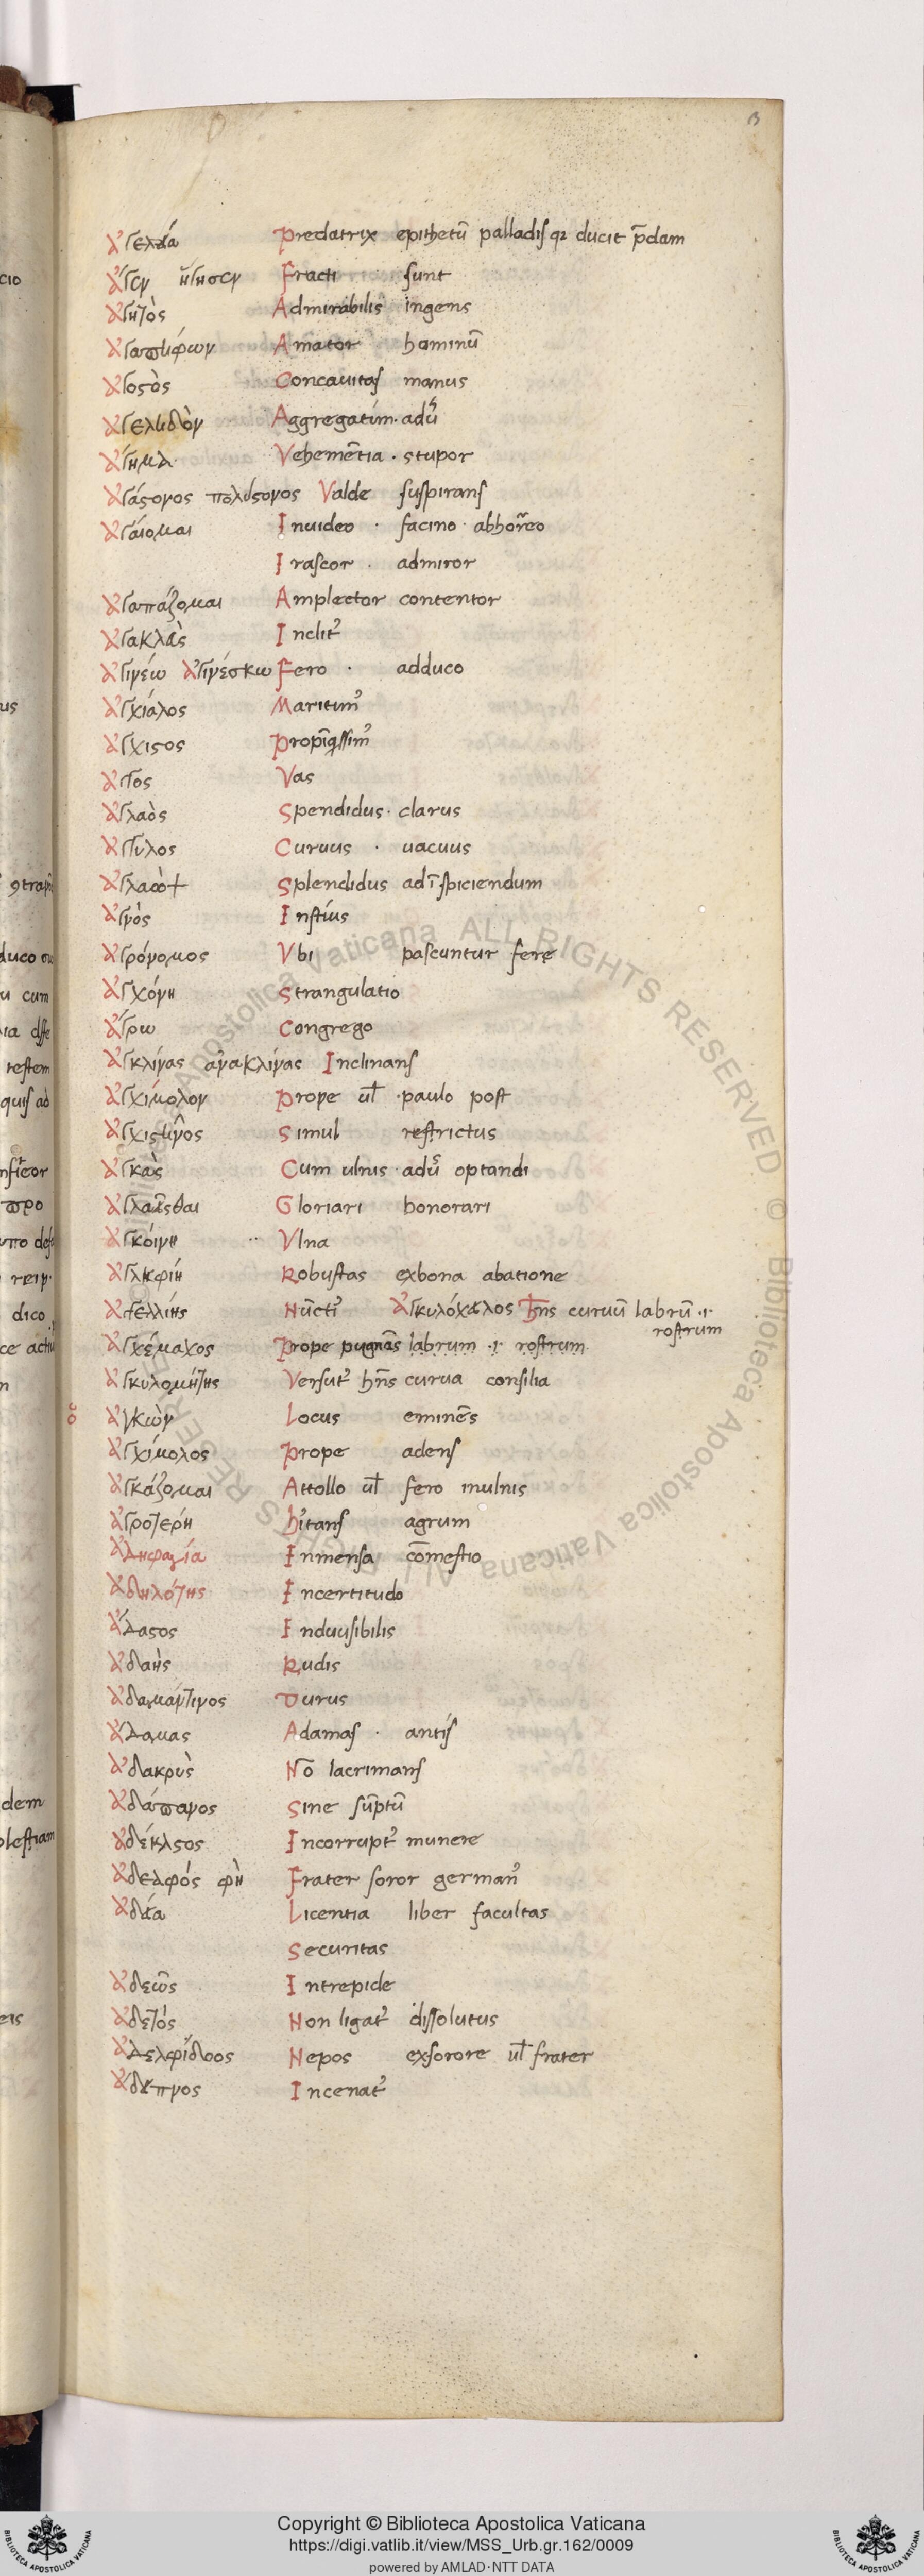 β
ἀγελεία Predatrix epithetū palladis qꝛ ducit p̄dam
ἄγεν ἤγησεν Fracti sunt
ἀγητὸς Admirabilis ingens
ἀγαπήνωρ Amator hominū
Concauitas manus
ἀγεληδὸν Aggregatim · adu̓
ἄγημα Vehemētia · stupor
ἀγάστονος πολύστονος Valde suspirans
ἀγαίομαι Inuideo · facino · abhor̄eo
Irascor · admiror
ἀγαπάζομαι Amplector contentor
ἀγακλεὴς Inclit᾽
ἀγινέω ἀγινέσκω Fero · adduco
ἀγχίαλος Maritim᾽
ἄγχιστος Propīqssim᾽
ἄγγος Vas
ἀγλαὸς Spendidus · clarus
ἀγκύλος Curuus · uacuus
Splendidus ad īspiciendum
ἁγνὸς
ἀγρόνομος Vbi pascuntur fere
ἀγχόνη Strangulatio
ἀγείρω Congrego
ἀγκλίνας ἀνακλίνας Inclinans
ἀγχίμολον Prope ul̄ · paulo post
ἀγχιστῖνος Simul restrictus
ἀγκὰς Cum ulnis · adu̓ optandi
ἀγλαεῖσθαι Gloriari honorari
ἀγκοίνη ·· Vlna
Robustas ex bona
Nūcti᾽ ἀγκυλόχειλος Hn̄s curuū labrū ·i·
rostrum
ἀγχέμαχος Prope pugnās labrum ·i· rostrum
ἀγκυλομήτης Versut᾽ hn̄s curua consilia
ἀγκὼν Locus eminēs
ἀγχίμολος Prope adens
ἀγκάζομαι Attollo ul̄ fero in ulnis
ἀγροτέρη h̓itans agrum
ἀδηφαγία Inmensa cōmestio
ἀδηλότης Incertitudo
ἄδαστος Indiuisibilis
ἀδαὴς Rudis
ἀδαμάντινος Durus
ἀδάμας Adamas · antis
ἀδακρὺς Nō lacrimans
ἀδάπανος Sine sūptū
ἀδέκαστος Incorrupt᾽ munere
ἀδελφός φὴ Frater soror german᾽
ἀδεία Licentia liber facultas
Securitas
ἀδεῶς Intrepide
ἀδετός Non ligat᾽ dissolutus
ἀδελφίδοος Nepos ex sorore ul̄ frater
ἄδειπνος Incenat᾽
Copyright © Biblioteca Apostolica Vaticana
https://digi.vatlib.it/view/MSS_Urb.gr.162/0009
powered by AMLAD·NTT DATA